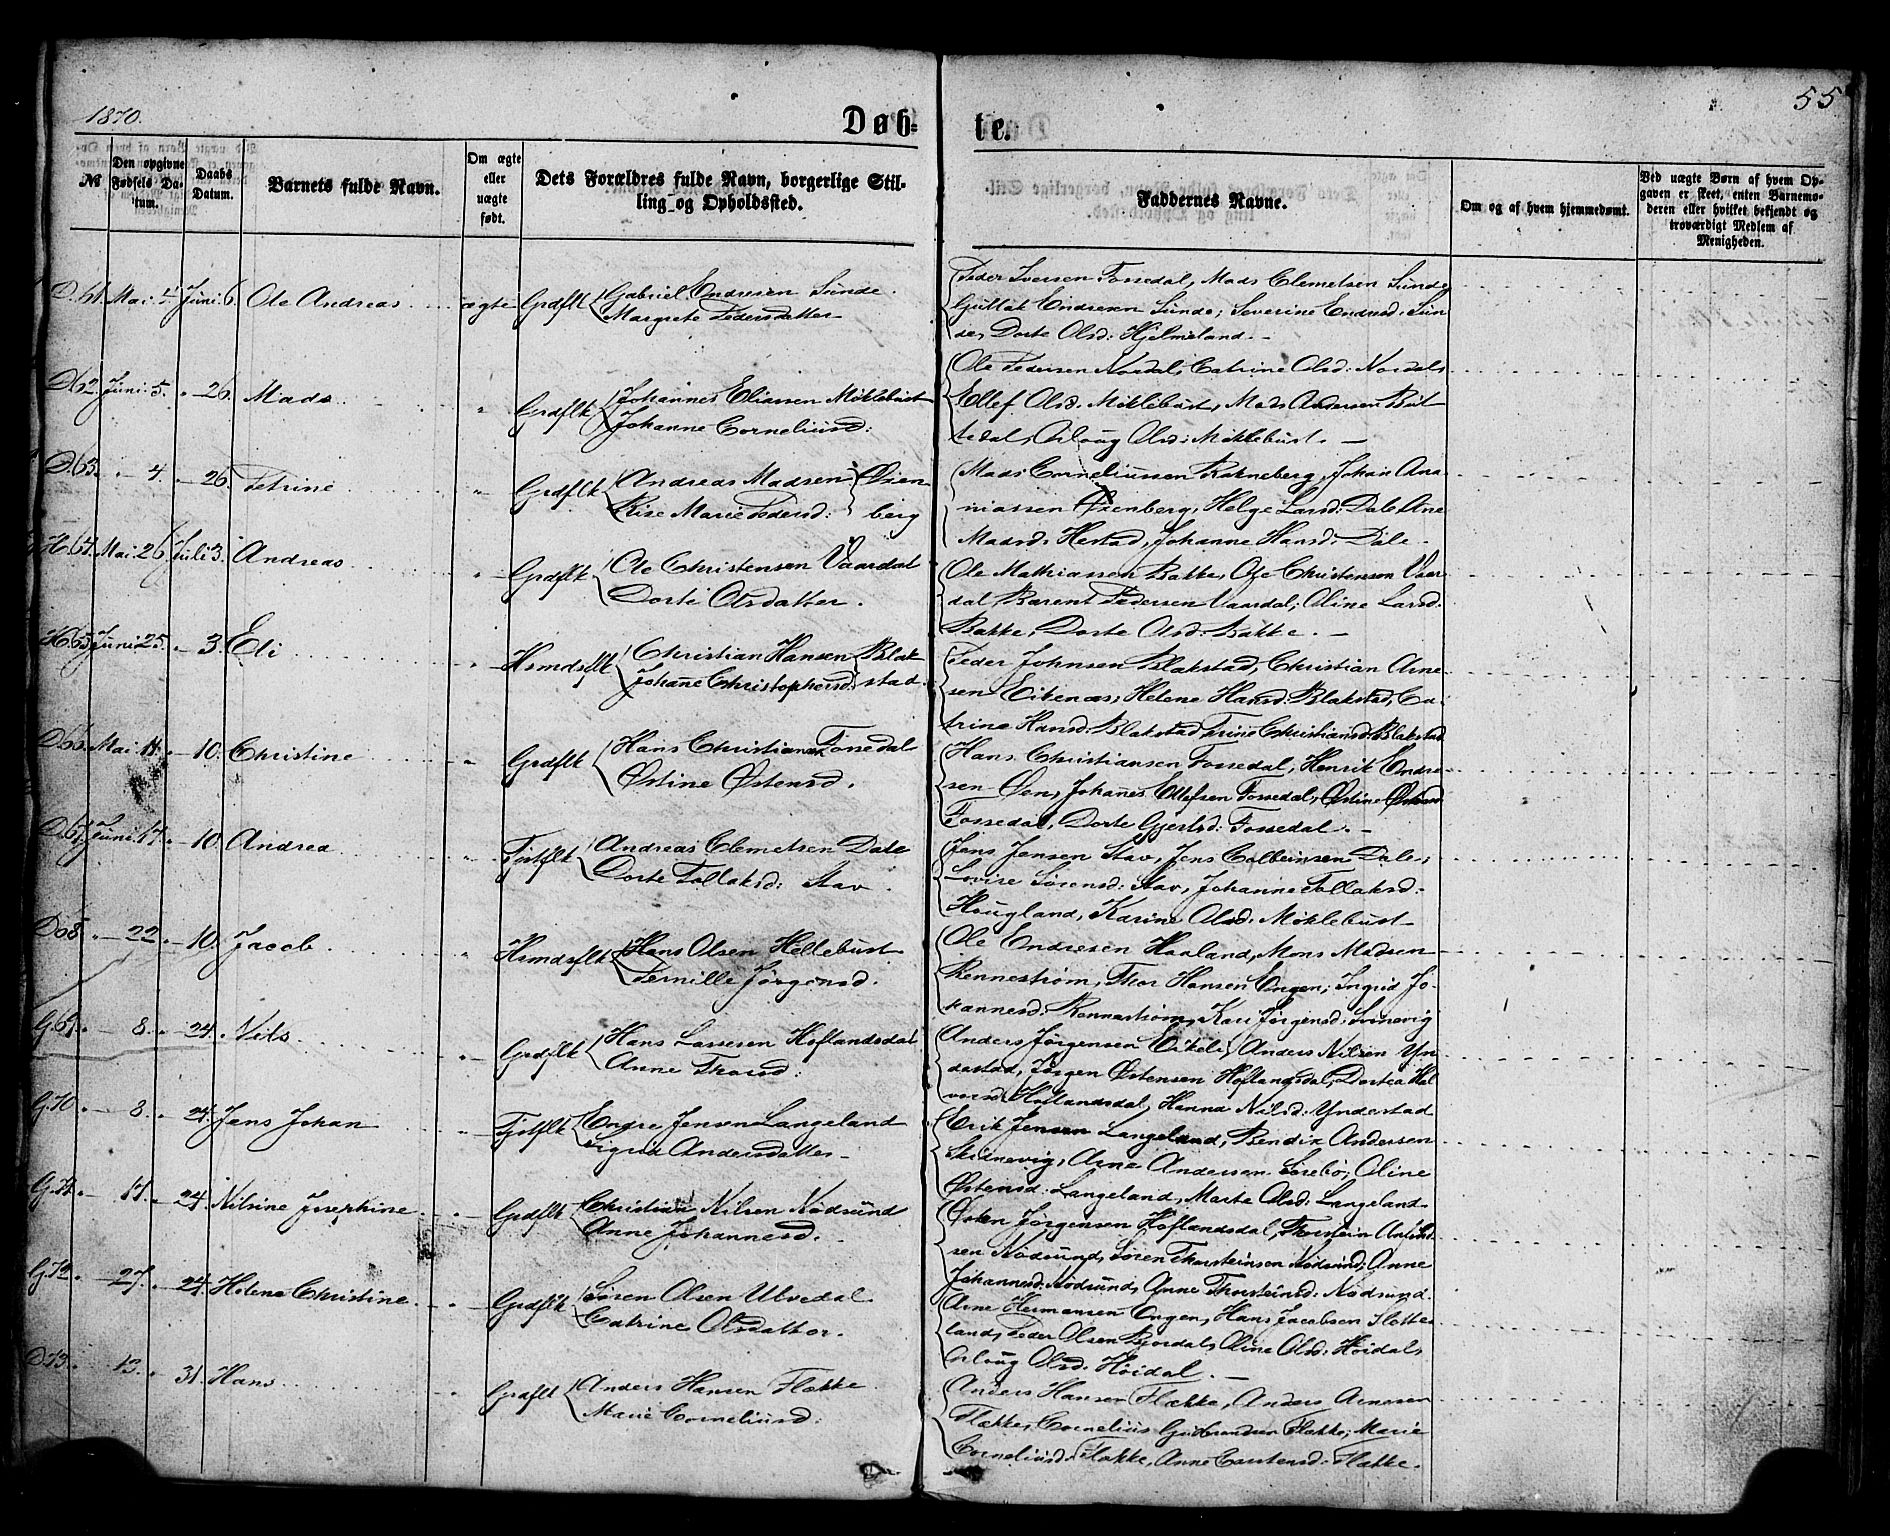 1870.
Døb-
te.
55
№
Den opgivne Fødsels Datum.
Daabs Datum.
Barnets fulde Navn.
Om ægte eller uægte født.
Dets Forældres fulde Navn, borgerlige Stilling og Opholdssted.
Faddernes Navne.
Om og af hvem hjemmedøbt.
Ved uægte Børn af hvem Opgaven er skeet, enten Barnemoderen eller hvilket bekjendt og troværdigt Medlem af Menigheden.
D.61. Mai 5 Juni 6. Ole Andreas ægte Grdflk Gabriel Endresen Sunde.
Margrete Pedersdatter
Peder Iversen Fossedal, Mads Clemetsen Sunde
Gullak Endresen Sunde, Severine Endresd. Sun
de, Dorte Olsd: Hjelmeland. -
D62. Juni 5. " 26. Mads " Grdflk Johannes Eliassen Møklebust
Johanne Corneliusd:
Ole Pedersen Nordal, Catrine Olsd: Nordal,
Ellef Olsd. Møklebust, Mads Andersen
tedal, Olsd: Møklebust. -
D.63. " 4. " 26. Petrine " Grdflk Andreas Madsen Øxen
Marie Pedersd: berg
Mads Corneliussen Johan Ana
niassen Øxenberg, Helge Larsd: Dale, Ane
Madsd: Herstad, Johanne Hansd: Dale.
H.64. Mai 26 Juli 3. Andreas " Grdflk Ole Christensen Vaardal
Dorte Olsdatter.
Ole Mathiassen Bakke, Ole Christensen Vaar
dal, Barent Pedersen Vaardal, Oline Larsd.
Bakke, Dorte Olsd: Bakke. -
H.65. Juni 25. " 3. Eli " Hsmdsflk Christian Hansen Blak
Johane Christophersd: stad.
Peder Johnsen Blakstad, Christian Arne
sen Eikenæs, Helene Hansd. Blakstad, Ca
trine Hansd: Blakstad, Trine Christiansd: Blakstad
D66. Mai 14. " 10. Christine " Grdflk Hans Christiansen Fossedal
Østine Østensd.
Hans Christiansen Fossedal, Henrik Endre
sen Øen, Johanes Ellefsen Fossedal, Østine
Fossedal, Dorte Gjertsd: Fossedal. -
D.67. Juni 17. " 10. Andrea " Fjstflk Andreas Clemetsen Dale
Dorte Tollaksd: Stav.
Jens Jensen Stav, Jens Colbeinsen Dale,
Lovise Sørensd: Stav, Johanne Tollaksd:
Hougland, Karine Olsd: Møklebust
D68 " 22 " 10. Jacob " Hsmdsflk Hans Olsen Hellebust
Pernille Jørgensd.
Ole Endresen Haaland, Mons Madsen
Rennestrøm, Thor Hansen Engen, Ingrid Jo
hannesd: Rennestrøm, Kari Jørgensd: Svinevig
G.69. " 8. " 24. Nils " Grdflk Hans Lassesen Hoflandsdal
Anne Thorsd:
Anders Jørgensen Eikeli, Anders Nilsen Yn
destad, Jørgen Østensen Hoflandsdal, Dortea Hal
vorsd Hoflandsdal, Hanna Nilsd: Yndestad
G.70. " 8. " 24. Jens Johan " Fjstflk Endre Jensen Langeland
Sigrid Andersdatter
Erik Jensen Langeland, Bendix Andersen
Skidnevig, Arne Andersen Sørebø, Oline
Østensd: Langeland, Marte Olsd: Langeland
G.71. " 17. " 24. Nilsine Josephine " Grdflk Christian Nilsen Nødsund
Anne Johannesd.
Østen Jørgensen Hoflandsdal, Thorstein
sen Nødsund, Søren Thorsteinsen Nødsund, Anne
Johannesd: Nødsund, Anne Thorsteinsd: Nødsund.
G.72. " 27. " 24. Helene Christine " Grdflk Søren Olsen Ulvedal
Catrine Olsdatter.
Arne Hermansen Engen, Hans Jacobsen Slotte
land, Peder Olsen Bjordal, Oline Olsd: Høidal,
Olsd: Høidal. -
D73. " 13. " 31. Hans " Grdflk Anders Hansen Flække
Marie Corneliusd:
Anders Hansen Flække, Anders Arnesen
Flække, Cornelius Gudbrandsen Flække, Marie
Corneliusd: Flække, Anne Carstensd: Flække.